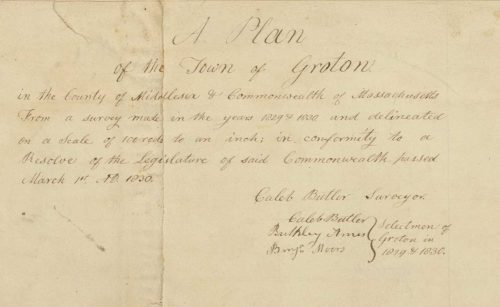 A Plan
of the Town of Groton
in the County of Middlesex & Commonwealth of Massachusetts
From a survey made in the years 1829 & 1830 and delineated
on a Scale of 100 rods to an inch; in conformity to a
Resolve of the Legislature of said Commonwealth passed
March 1st AD. 1830.
Caleb Butler Surveyor.
Caleb Butler
Bulkley Ames
Benja Moors
Selectmen of
Groton in
1829 & 1830.